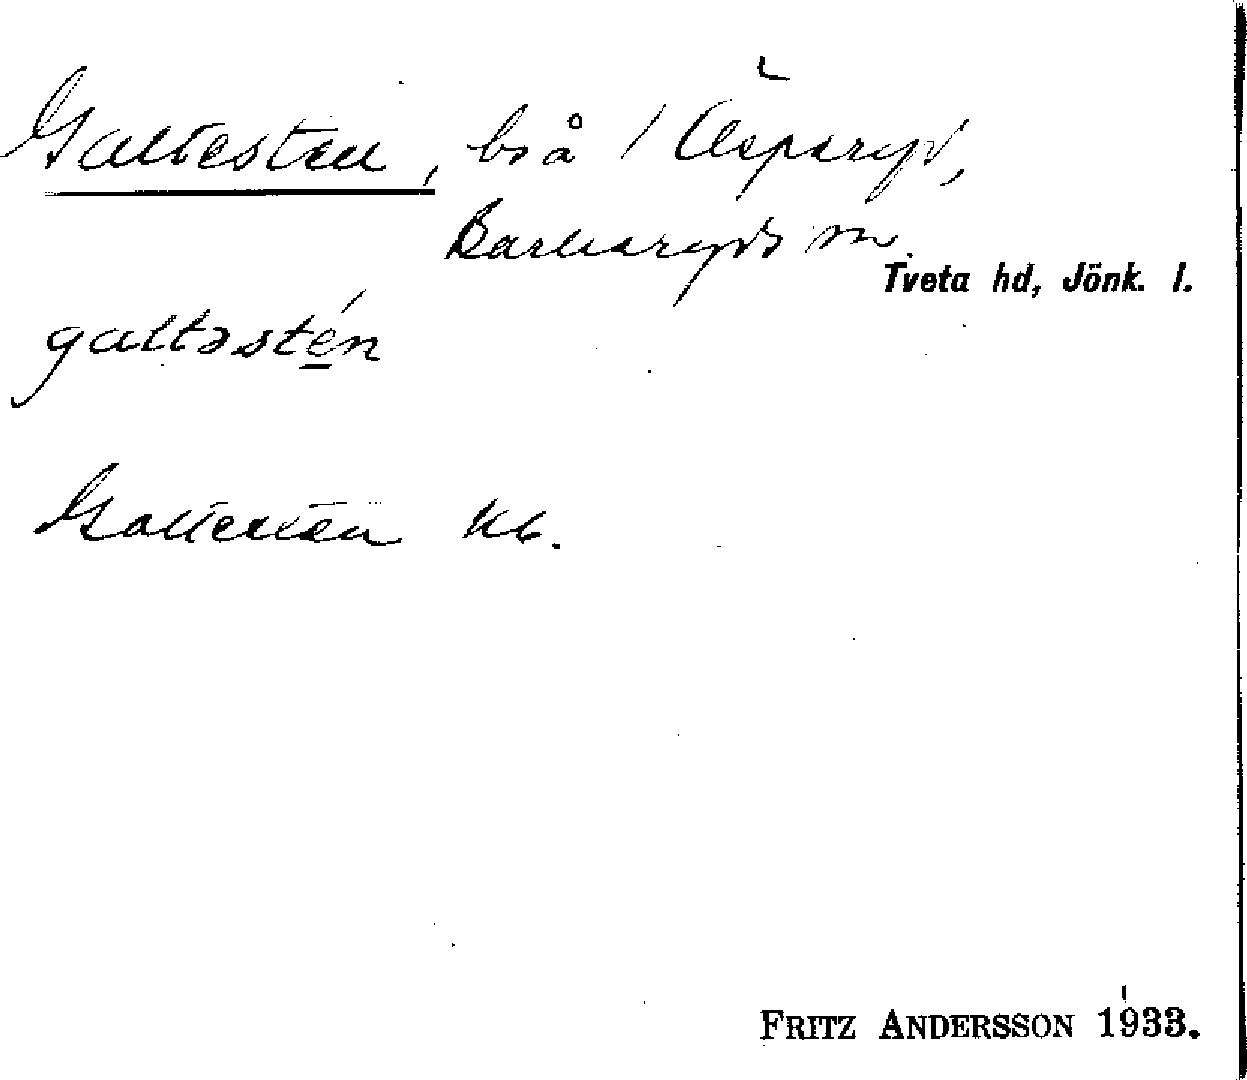 Galtesten, bså / Äsparyd,
Barkeryds sn
Tveta hd, Jönk. l.
galtəstén
Galtesten kb.
FRITZ ANDERSSON 1933.